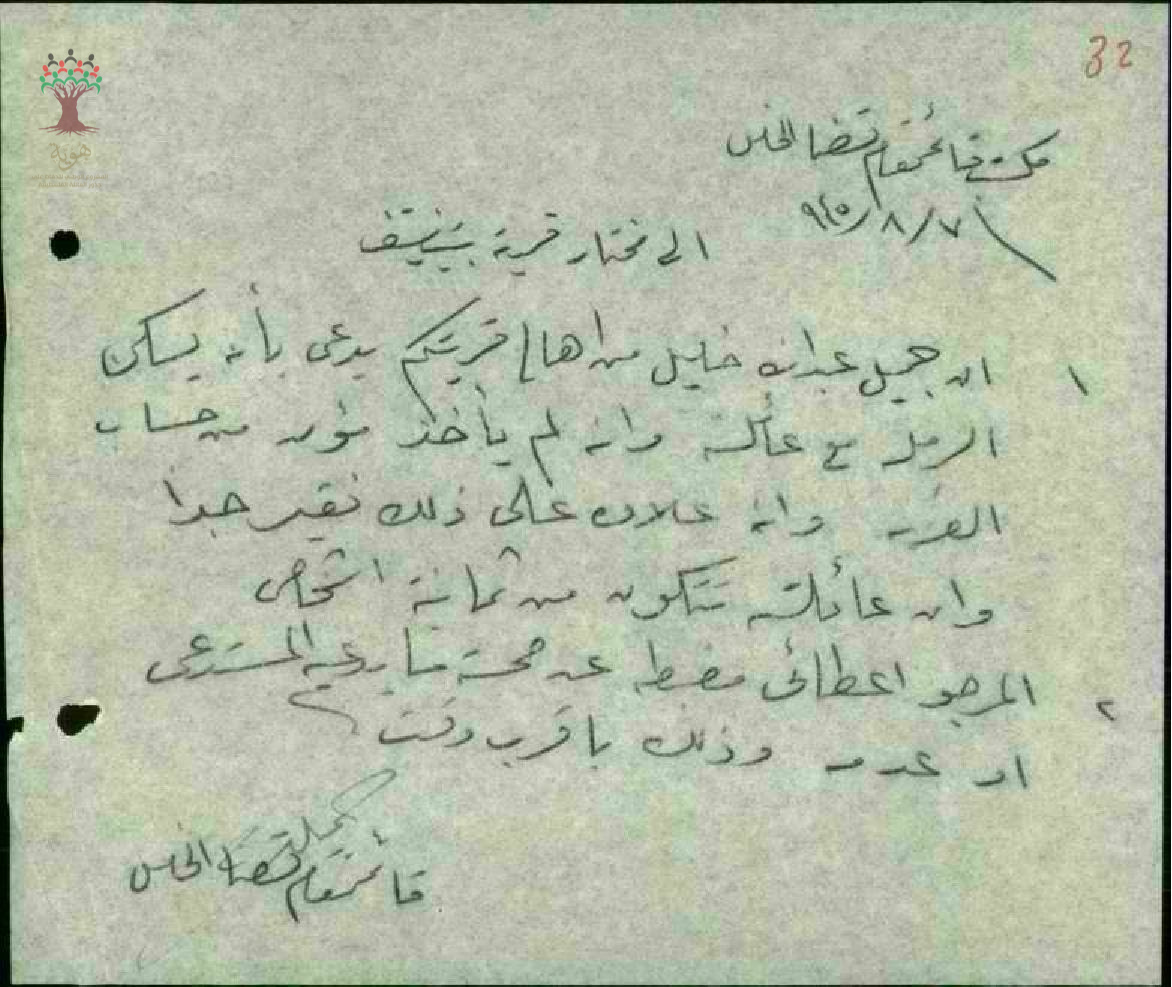 32
هوية
مكتب قائمقام قضا الخليل
٩٤٥/٨/٧
الى مختار قرية بيت نتيف
١ ان جميل عبدالله خليل من اهالي قريتكم يدعي بأنه يسكن
الرملة مع عائلته وانه لم يأخذ من حساب
القرية وانه علاوة على ذلك فقير جدا
وان عائلته تتكون من ثمانية اشخاص
٢ المرجو اعطائي مضبطة عن صحة ما يدعيه المستدعي
او عدمه وذلك باقرب وقت
قائمقام قضا الخليل